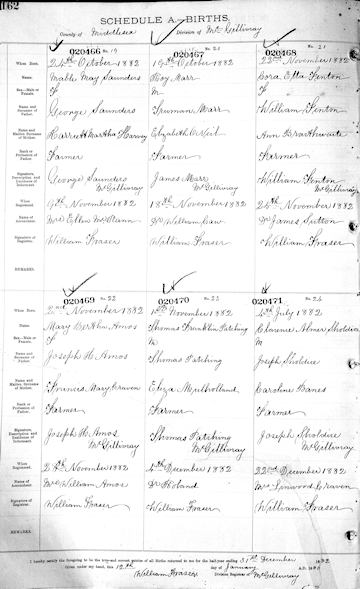 1162
SCHEDULE A.—BIRTHS.
County of Middlesex Division of McGillivray
020466 No. 19
When Born. 24th October 1882
Name. Mable May Saunders
Sex—Male or Female. F
Name and Surname of Father. George Saunders
Name and Maiden Surname of Mother. Harriett Martha Harvey
Rank or Profession of Father. Farmer
Signature, Description, and Residence of Informant. George Saunders
McGillivray
When Registered. 9th November 1882
Name of Accoucheur. Mrs Ellen
Signature of Registrar. William Fraser
REMARKS.
020467
19th October 1882
Roy Marr
M
Marr
Elizabeth O'Neil
Farmer
James Marr
McGillivray
18th November 1882
Dr William
William Fraser
020468 No. 21
22nd November 1882
Cora Etta Fenton
F
William Fenton
Ann Brathwaite
Farmer
William Fenton
McGillivray
24th November 1882
Dr James Sutton
William Fraser
020469 No. 22
When Born. 2nd November 1882
Name. Mary Bertha Amos
Sex—Male or Female. F
Name and Surname of Father. Joseph H. Amos
Name and Maiden Surname of Mother. Francis Mary Craven
Rank or Profession of Father. Farmer
Signature, Description and Residence of Informant. Joseph H. Amos
McGillivray
When Registered. 28th November 1882
Name of Accoucheur. Mrs William Amos
Signature of Registrar. William Fraser
REMARKS.
020470 No. 23
November 1882
Thomas Franklin Patching
M
Thomas Patching
Eliza Mulholland
Farmer
Thomas Patching
McGillivray
4th December 1882
Dr
William Fraser
020471 No. 24
4th July 1882
Clarence Abner
M
Joseph
Caroline
Farmer
Joseph
McGillivray
22nd December 1882
Mrs Linwood Craven
William Fraser
I hereby certify the foregoing to be the true and correct entries of all Births returned to me for the half-year ending 31st December 1882
Given under my hand, this 12th day of January A.D. 1883
William Fraser Division Registrar of McGillivray